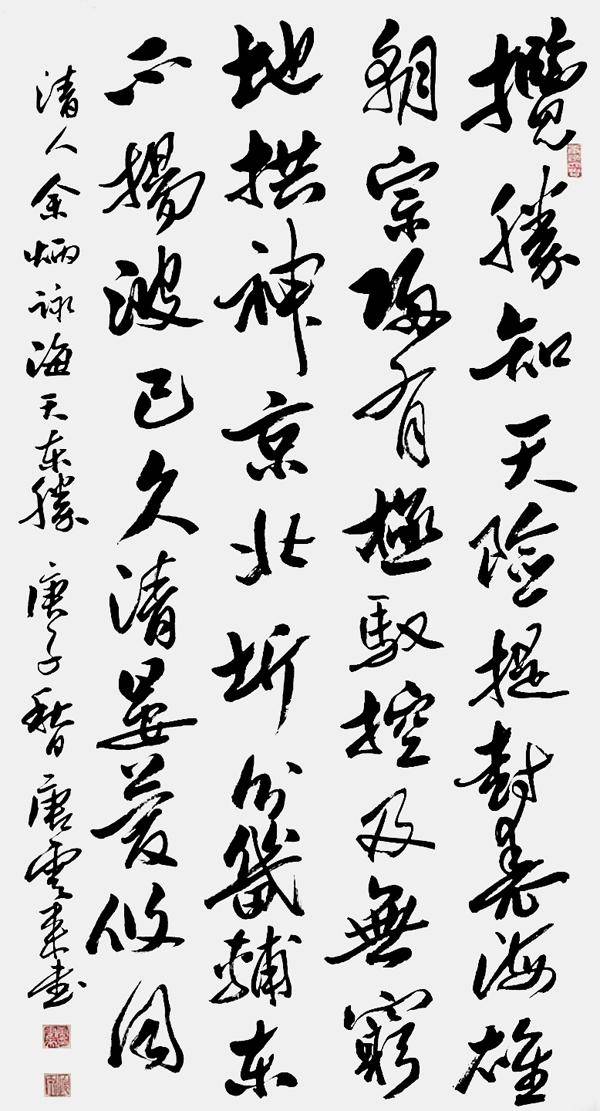 攬勝知天險提封表海雄
朝宗歸有極馭控及無窮
地拱神京北圻分畿輔東
不揚波已久清晏慶攸同
清人余炳詠海天東勝 庚子秋日唐雲來書